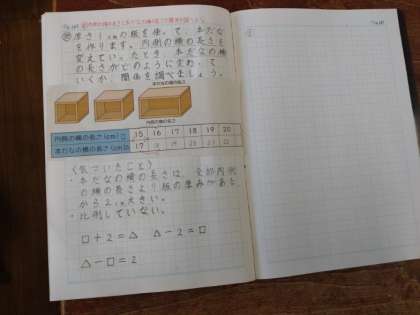 厚さ1cmの板を使って、本だな
を作ります。内側の横の長さを
変えていったとき、本だなの横
の長さがどのように変わって
いくか、関係を調べましょう。
本だなの横の長さ
内側の横の長さ
内側の横の長さ(cm)□ 15 16 17 18 19 20
本だなの横の長さ(cm)△ 17 18 19 20 21 22
〈気づいたこと〉
・本だなの横の長さは、全部内側
の横の長さより板の厚みがある
から2cm大きい。
・比例していない。
□+2=△ △-2=□
△-□=2